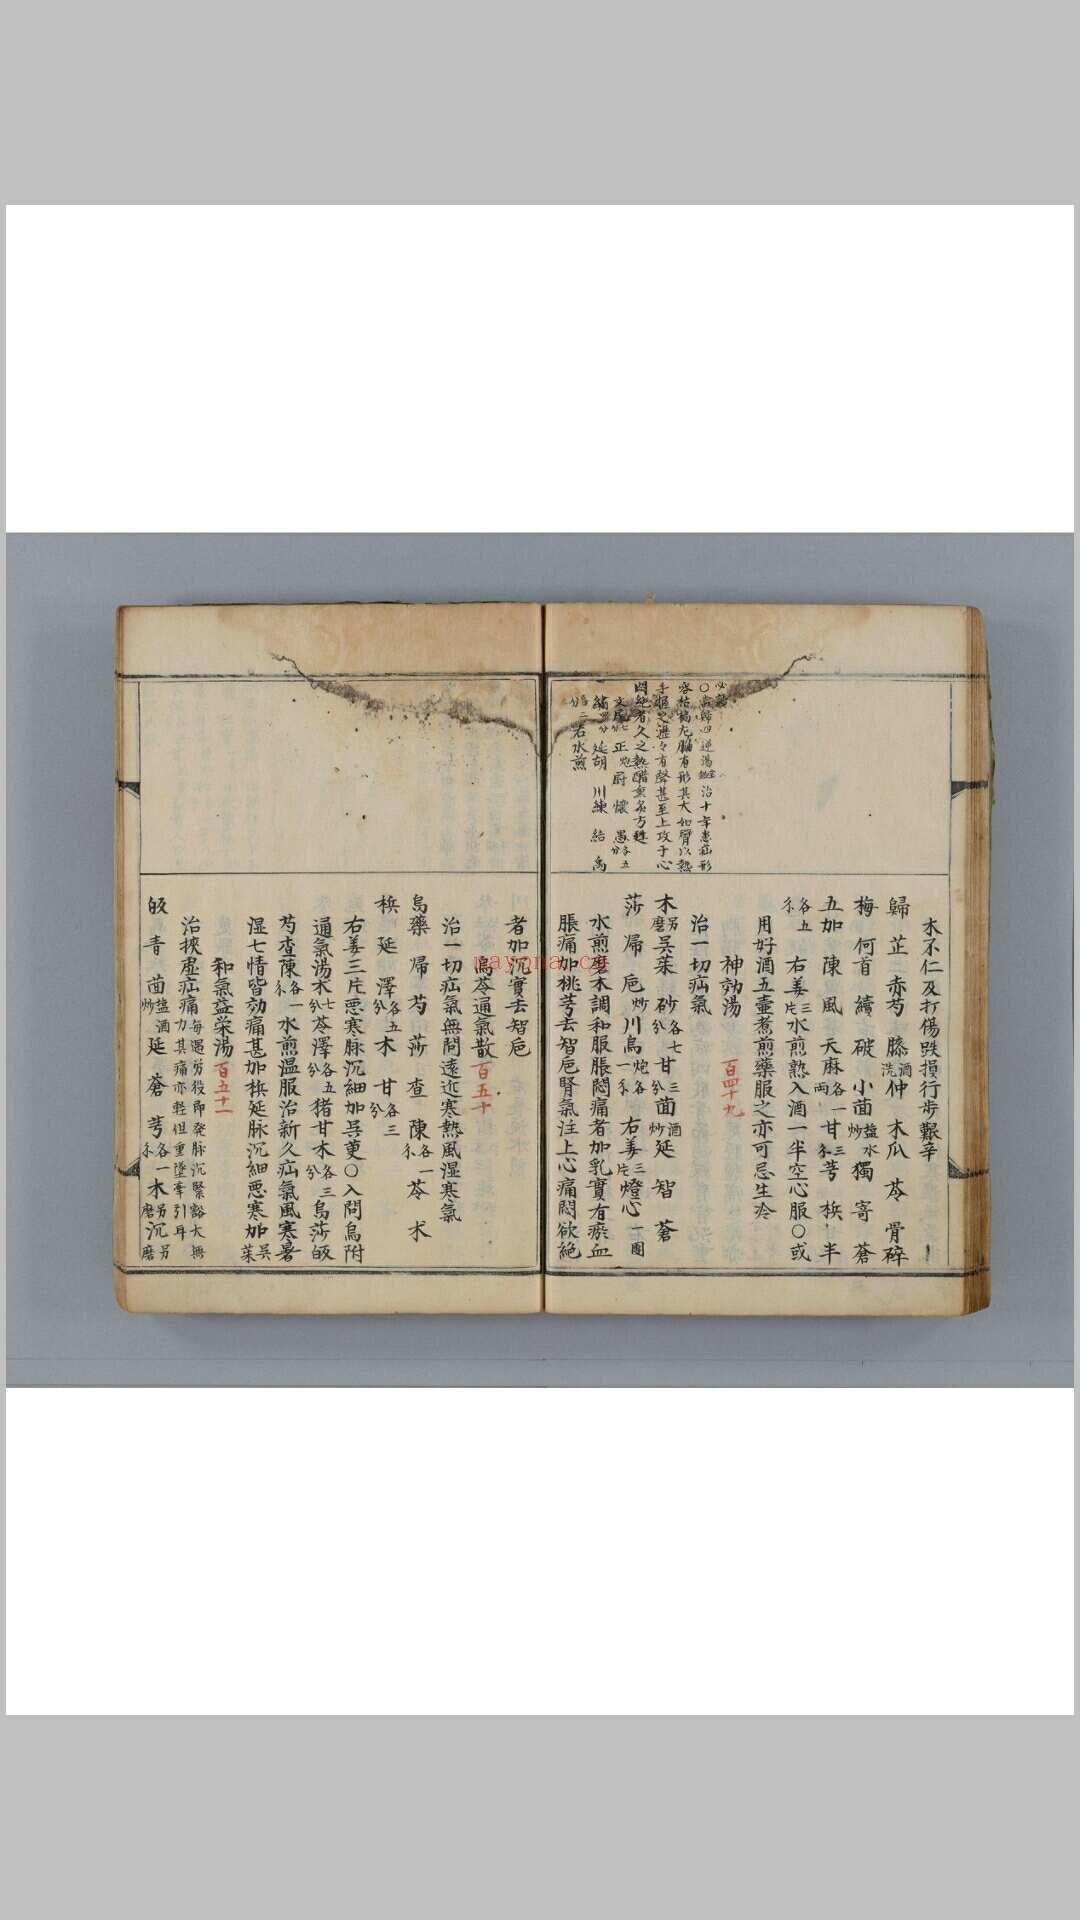 木不仁及打傷跌損行步艱辛
歸 芷 赤芍 膝酒洗 仲 木瓜 苓 骨碎
梅 何首 續 破 小茴鹽水炒 獨 寄 蒼
五加 陳 風 天麻各一両 甘三分 芎 梹 半
各五分 右姜三片水煎熟入酒一半空心服○或
用好酒五壷煮煎藥服之亦可忌生冷
神効湯 百四十九
治一切疝氣
木另磨 呉茱 砂各七分 甘三分 茴酒炒 延 智 蒼
莎 帰 巵炒 川烏炮各一分 右姜三片燈心一團
水煎磨木調和服脹悶痛者加乳實有瘀血
脹痛加桃芎去智巵腎氣注上心痛悶欲絶
者加沉實去智巵
烏苓通氣散 百五十
治一切疝氣無問遠近寒熱風湿寒氣
烏藥 帰 芍 莎 查 陳各一分 苓 朮
梹 延 澤各五分 木 甘各三分
右姜三片悪寒脉沉細加呉茰○入問烏附
通氣湯朮七分苓澤各五分猪甘木各三分烏莎皈
芍查陳各一分水煎温服治新久疝氣風寒暑
湿七情皆効痛甚加梹延脉沉細悪寒加呉茱
和氣益栄湯 百五十一
治挾虚疝痛每遇労役即発脉沉緊豁大無力其痛亦軽但重墜牽引耳
皈 青 茴鹽酒炒 延 蒼 芎各一分 木另磨 沉另磨
○當歸四逆湯 治十年患疝形
容枯槁左脇有形其大如臂以熱
手握之瀝々有聲甚至上攻于心
悶絶者久之熱醋熏灸方甦
右水煎
nayona.cn